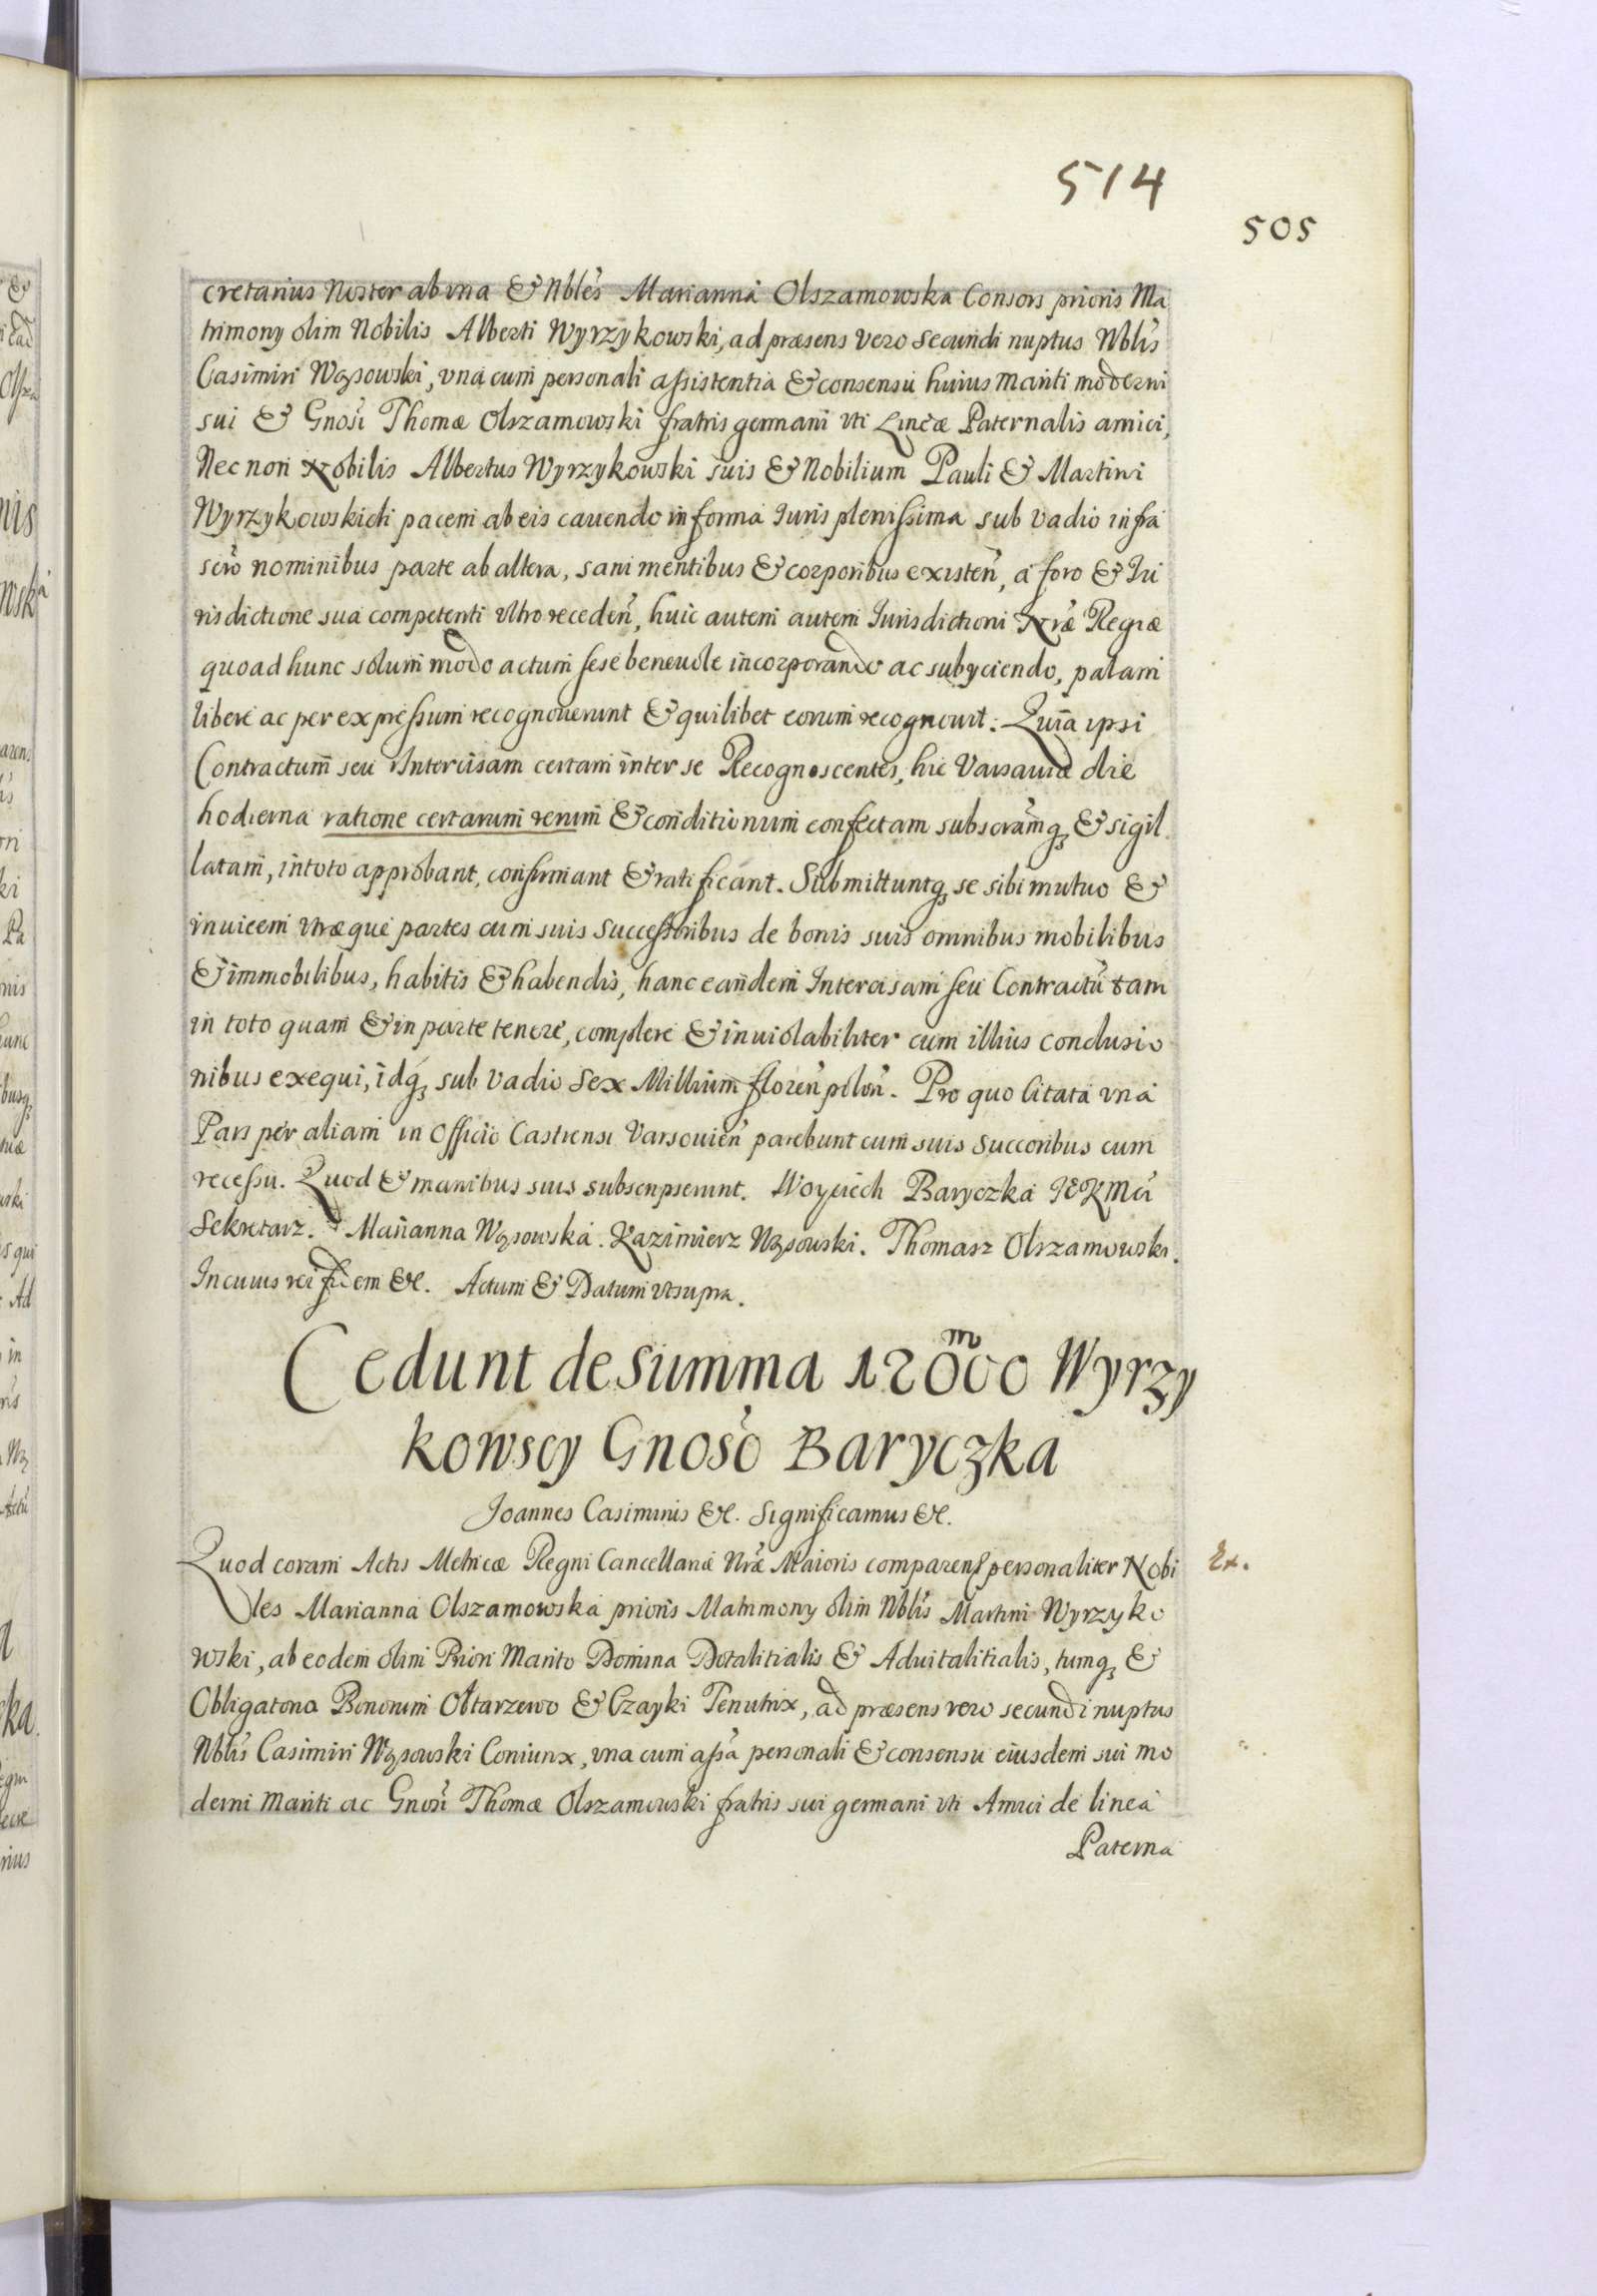 514
505
cretarius Noster ab vna & Nbles Marianna Olszamowska Consors prioris Ma
trimony olim Nobilis Alberti Wyrzykowski, ad præsens vero secundi nuptus Nblis
Casimiri Wąsowski, vna cum personali assistentia & consensu huius mariti moderni
sui & Gnosi Thomæ Olszamowski fratris germani vti Lineæ Paternalis amici,
Nec non Nobilis Albertus Wyrzykowski suis & Nobilium Pauli & Martini
Wyrzykowskich pacem ab eis cauendo in forma Iuris plenissima sub vadio infra
scro nominibus parte ab altera, sani mentibus & corporibus existen, a foro & Iu
risdictione sua competenti vltro receden, huic autem autem Iurisdictioni Nræ Regiæ
quoad hunc solum modo actum sese beneuole incorporando ac subyciendo, palam
libere ac per expressum recognouerunt & quilibet eorum recognouit: Quia ipsi
Contractum seu Intercisam certam inter se Recognoscentes, hic Varsauiæ die
hodierna ratione certarum rerum & conditionum confectam subscramq & sigil
latam, in toto approbant, confirmant & ratificant. Submittuntq se sibi mutuo &
inuicem vtræque partes cum suis successoribus de bonis suis omnibus mobilibus
& immobilibus, habitis & habendis, hanc eandem Intercisam seu Contractu tam
in toto quam & in parte tenere, complere & inuiolabiliter cum illius conclusio
nibus exequi, idq sub vadio Sex Millium floren polon. Pro quo citata vna
Pars per aliam in Officio Castrensi Varsouien parebunt cum suis succoribus cum
recessu. Quod & manibus suis subscripserunt. Woyciech Baryczka IEKMci
Sekretarz. Marianna Wąsowska. Kazimierz Wąsowski. Thomasz Olszamowski.
In cuius rei fidem &c. Actum & Datum vt supra.
Cedunt de summa 12000 m Wyrzy
kowscy Gnoso Baryczka
Joannes Casimirus &c. Significamus &c.
Quod coram Actis Metricæ Regni Cancellariæ Nræ Maioris comparens personaliter Nobi
les Marianna Olszamowska prioris Matrimony olim Nblis Martini Wyrzyko
wski, ab eodem olim Priori Marito Domina Dotalitialis & Aduitalitialis, tumq &
Obligatoria Bonorum Ołtarzewo & Czayki Tenutrix, ad præsens vero secundi nuptus
Nblis Casimiri Wąsowski Coniunx, vna cum assa personali & consensu eiusdem sui mo
derni mariti ac Gnosi Thomæ Olszamowski fratris sui germani vti Amici de linea
Paterna
Ex.